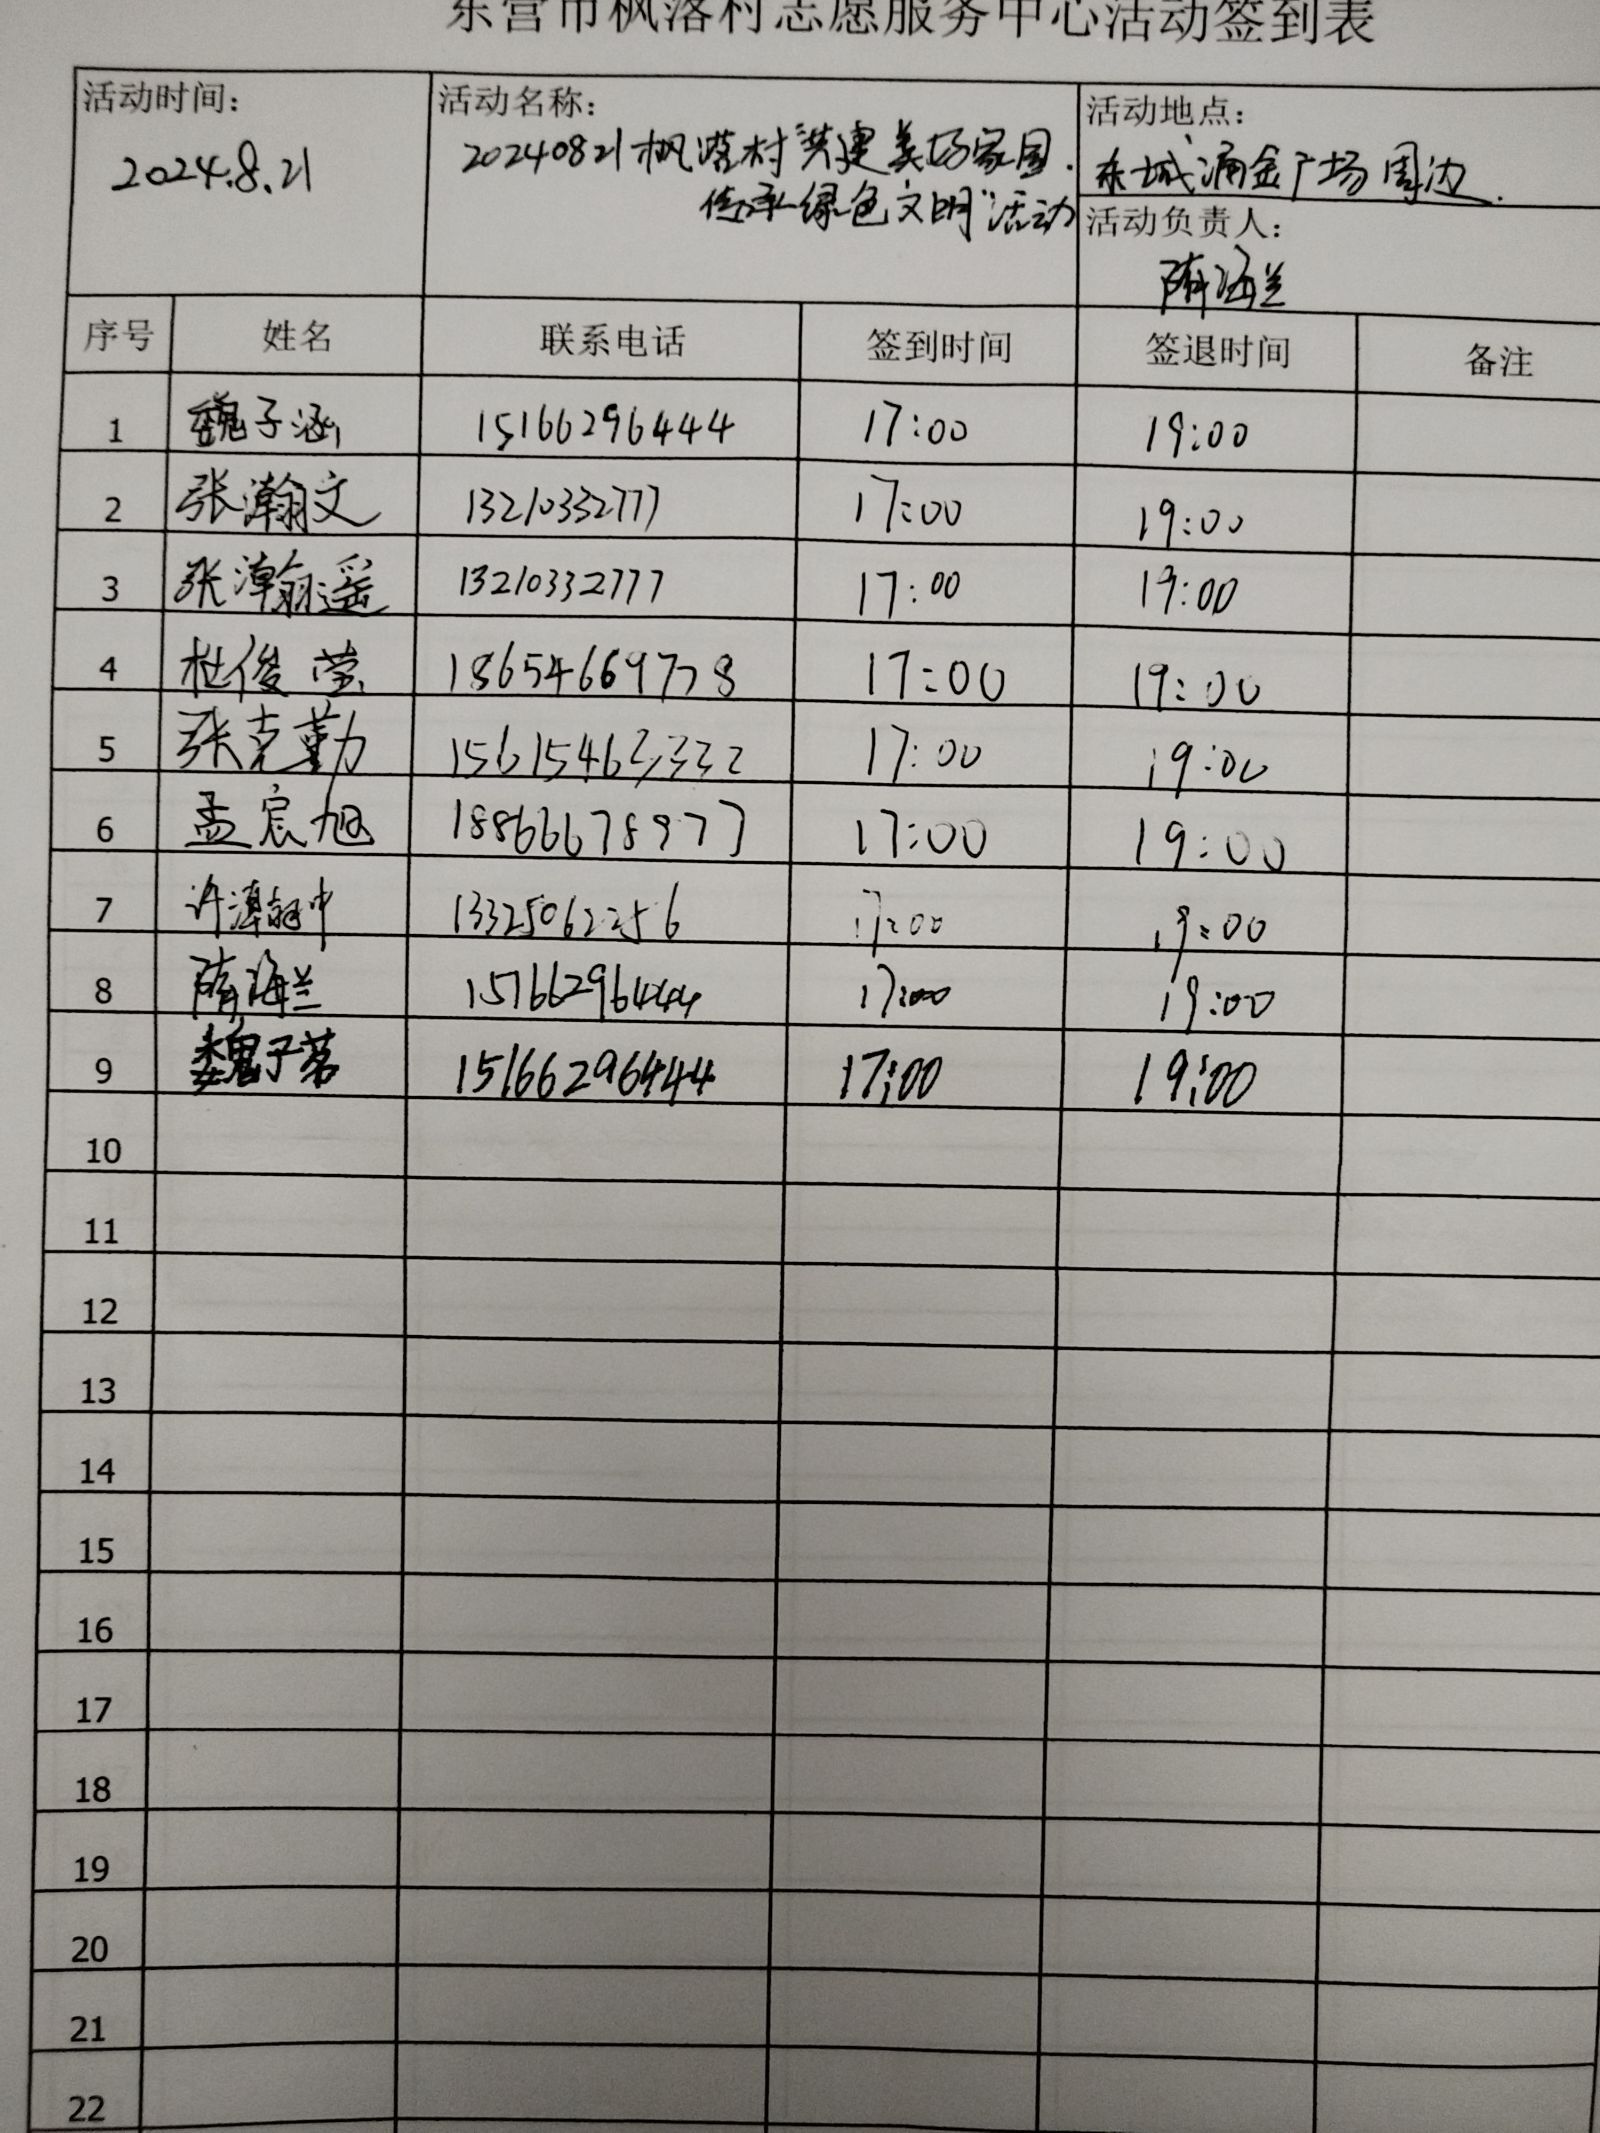 东营市枫落村志愿服务中心活动签到表
活动时间: 活动名称: 活动地点:
2024.8.21 20240821枫落村“共建美好家园. 东城涌金广场周边.
传承绿色文明”活动 活动负责人:
隋海兰
序号 姓名 联系电话 签到时间 签退时间 备注
1 魏子涵 15166296444 17:00 19:00
2 张瀚文 13210332777 17:00 19:00
3 张瀚遥 13210332777 17:00 19:00
4 杜俊莹 18654669778 17:00 19:00
5 张克勤 15615463332 17:00 19:00
6 孟宸旭 18866678977 17:00 19:00
7 许瀚中 13325062256 17:00 19:00
8 隋海兰 15166296444 17:00 19:00
9 魏子茗 15166296444 17:00 19:00
10
11
12
13
14
15
16
17
18
19
20
21
22